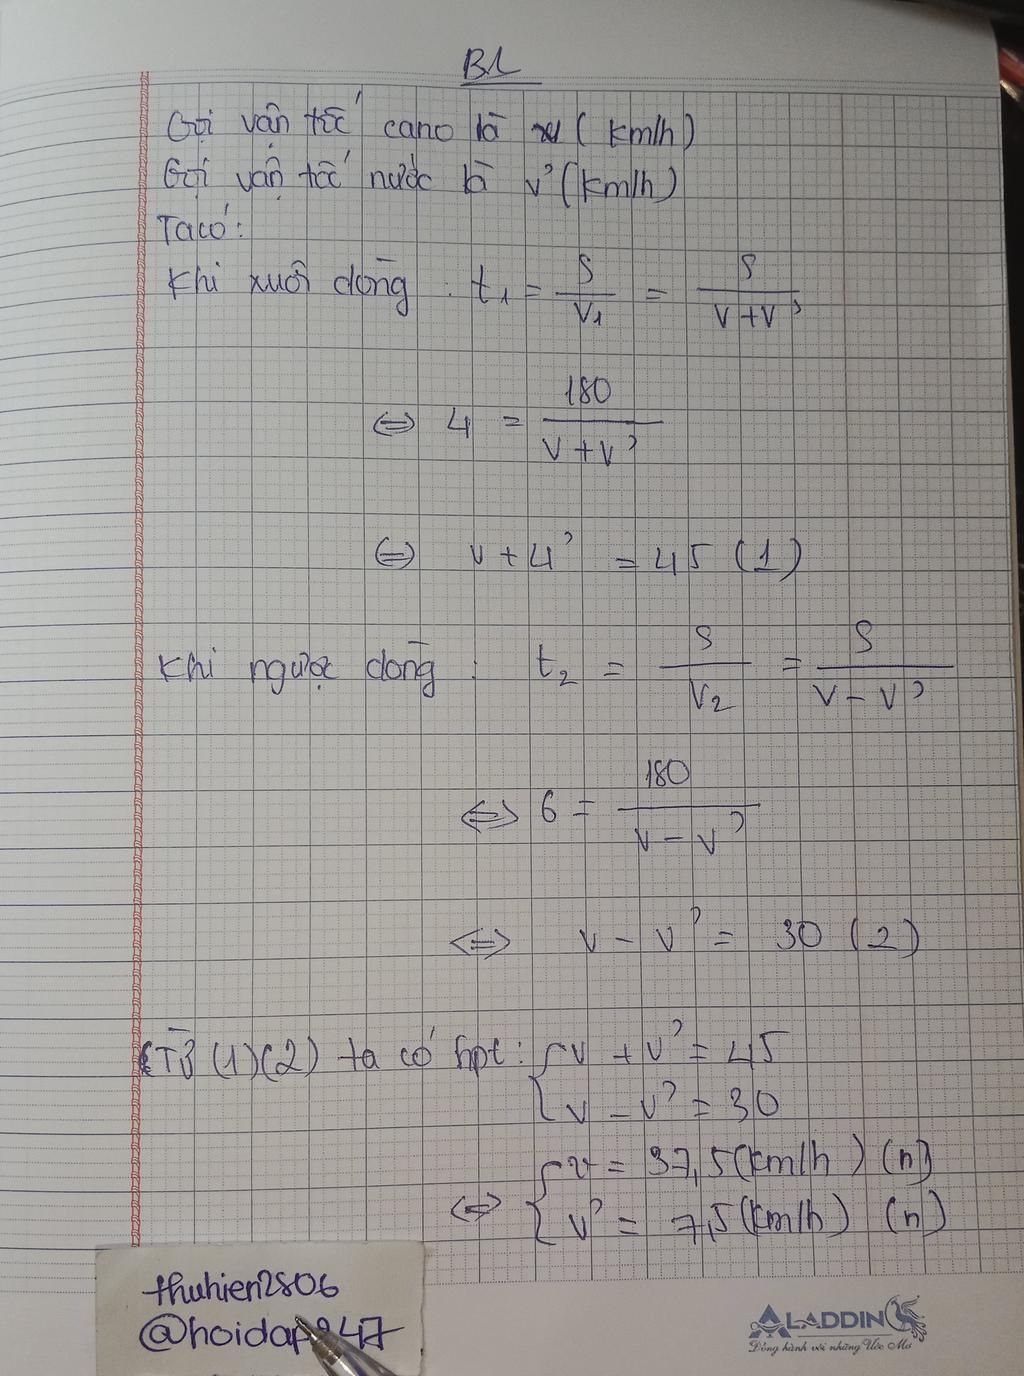 BL
Gọi vận tốc cano là v (km/h)
Gọi vận tốc nước là v' (km/h)
Ta có:
Khi xuôi dòng : t₁ = S/V₁ = S/(V+V')
⇔ 4 = 180/(V+V')
⇔ v + 4' = 45 (1)
Khi ngược dòng : t₂ = S/V₂ = S/(V-V')
⇔ 6 = 180/(V-V')
⇔ V - V' = 30 (2)
Từ (1)(2) ta có hpt: { V + V' = 45
V - V' = 30
⇔ { v = 37,5 (km/h) (n)
V' = 7,5 (km/h) (n)
thuhien2806
@hoidap247
ALADDIN
Đồng hành với những Ước Mơ